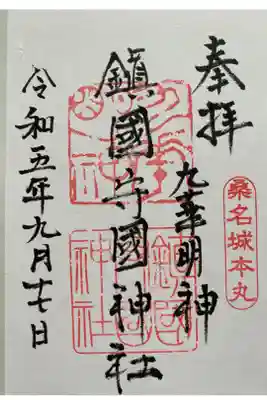 桑名城本丸
奉拝
九華明神
鎮國守國神社
令和五年九月十七日